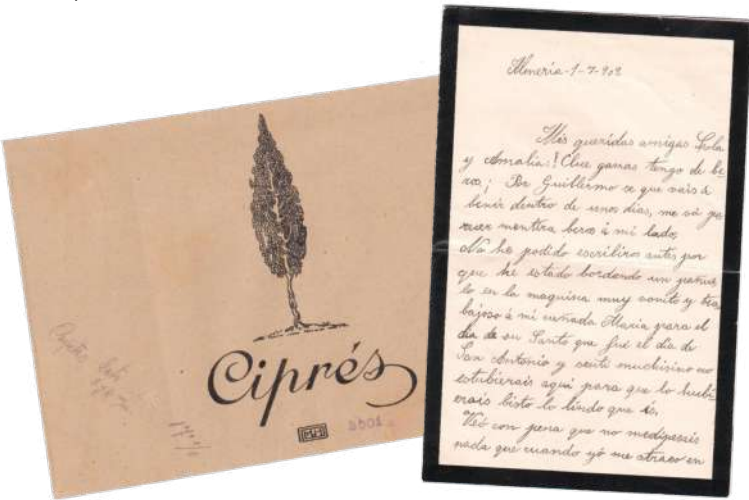 Ciprés
Almería-1-7-902
Mis queridas amigas Lola
y Amalia: ! Que ganas tengo de be-
ros; Por Guillermo se que vais á
benir dentro de unos dias, me vá pa
recer mentira beros á mi lado,
No he podido escribiros antes por
que he estado bordando un pañue
lo en la maquina muy bonito y tra
bajoso á mi cuñada Maria para el
dia de su Santo que fué el dia de
San Antonio y sentí muchisimo no
estubierais aqui para que lo hubi
erais bisto lo lindo que és,
Veó con pena que no me
nada que cuando yó me atraco en